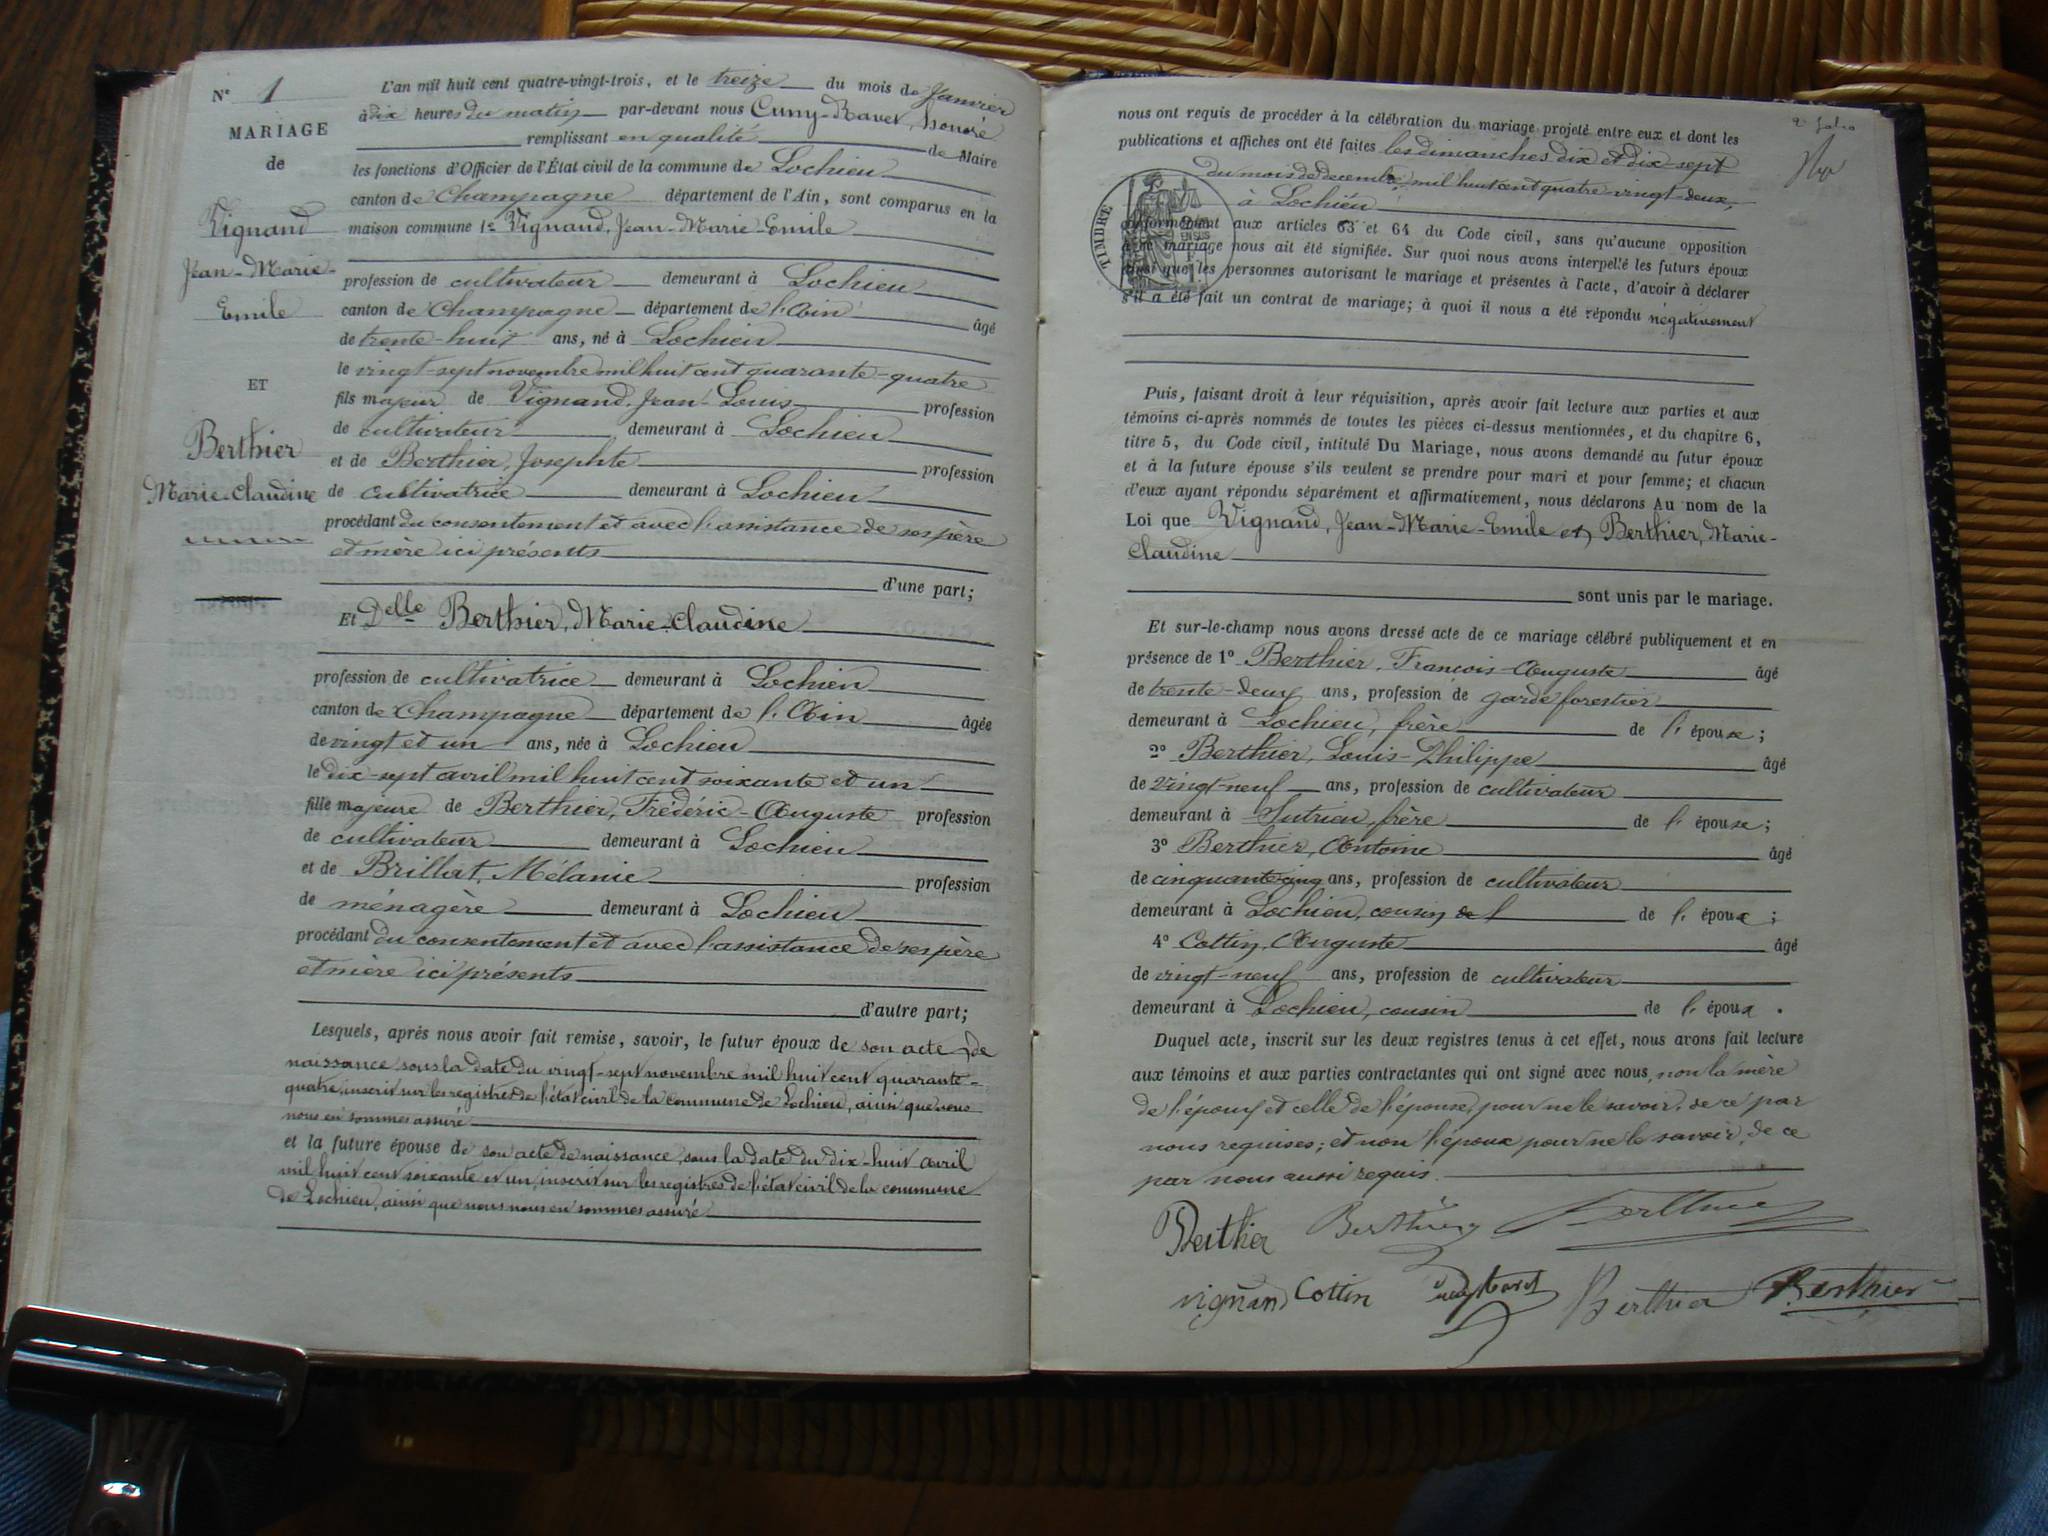 N° 1
MARIAGE
de
Vignand
Jean-Marie-
Emile
ET
Berthier
Marie-Claudine
L'an mil huit cent quatre-vingt-trois, et le treize du mois de Janvier
à dix heures du matin par-devant nous Cuny-Ravet, honoré
remplissant en qualité de Maire
les fonctions d'Officier de l'État civil de la commune de Lochieu
canton de Champagne département de l'Ain, sont comparus en la
maison commune 1° Vignand, Jean-Marie-Emile
profession de cultivateur demeurant à Lochieu
canton de Champagne département de l'Ain âgé
de trente-huit ans, né à Lochieu
le vingt-sept novembre mil huit cent quarante-quatre
fils majeur de Vignand, Jean-Louis profession
de cultivateur demeurant à Lochieu
et de Berthier, Josephte profession
de cultivatrice demeurant à Lochieu
procédant du consentement et avec l'assistance de ses père
et mère ici présents
d'une part;
Et Delle Berthier, Marie-Claudine
profession de cultivatrice demeurant à Lochieu
canton de Champagne département de l'Ain âgée
de vingt et un ans, née à Lochieu
le dix-sept avril mil huit cent soixante et un
fille majeure de Berthier, Frédéric-Auguste profession
de cultivateur demeurant à Lochieu
et de Brillat, Mélanie profession
de ménagère demeurant à Lochieu
procédant du consentement et avec l'assistance de ses père
et mère ici présents
d'autre part;
Lesquels, après nous avoir fait remise, savoir, le futur époux de son acte de
naissance sous la date du vingt-sept novembre mil huit cent quarante-
quatre, inscrit sur les registres de l'état civil de la commune de Lochieu, ainsi que nous
nous en sommes assuré
et la future épouse de son acte de naissance, sous la date du dix-huit avril
mil huit cent soixante et un, inscrit sur les registres de l'état civil de la commune
de Lochieu, ainsi que nous nous en sommes assuré
2e folio
nous ont requis de procéder à la célébration du mariage projeté entre eux et dont les
publications et affiches ont été faites les dimanches dix et dix-sept
du mois de decembre mil huit cent quatre vingt-deux,
à Lochieu
TIMBRE
conformément aux articles 63 et 64 du Code civil, sans qu'aucune opposition
à ce mariage nous ait été signifiée. Sur quoi nous avons interpellé les futurs époux
ainsi que les personnes autorisant le mariage et présentes à l'acte, d'avoir à déclarer
s'il a été fait un contrat de mariage; à quoi il nous a été répondu négativement
Puis, faisant droit à leur réquisition, après avoir fait lecture aux parties et aux
témoins ci-après nommés de toutes les pièces ci-dessus mentionnées, et du chapitre 6,
titre 5, du Code civil, intitulé Du Mariage, nous avons demandé au futur époux
et à la future épouse s'ils veulent se prendre pour mari et pour femme; et chacun
d'eux ayant répondu séparément et affirmativement, nous déclarons Au nom de la
Loi que Vignand, Jean-Marie-Emile et Berthier, Marie-
Claudine
sont unis par le mariage.
Et sur-le-champ nous avons dressé acte de ce mariage célébré publiquement et en
présence de 1° Berthier, François-Auguste âgé
de trente-deux ans, profession de garde forestier
demeurant à Lochieu, frère de l'épouse;
2° Berthier, Louis-Philippe âgé
de vingt-neuf ans, profession de cultivateur
demeurant à Sutrieu, frère de l'épouse;
3° Berthier, Antoine âgé
de cinquante-cinq ans, profession de cultivateur
demeurant à Lochieu, cousin de l de l'époux;
4° Cottin, Auguste âgé
de vingt-neuf ans, profession de cultivateur
demeurant à Lochieu, cousin de l'époux.
Duquel acte, inscrit sur les deux registres tenus à cet effet, nous avons fait lecture
aux témoins et aux parties contractantes qui ont signé avec nous, non la mère
de l'époux et celle de l'épouse, pour ne le savoir, de ce par
nous requises; et non l'époux pour ne le savoir, de ce
par nous aussi requis.
Berthier Berthier Berthier
vignand Cottin Cuny Ravet Berthier Berthier